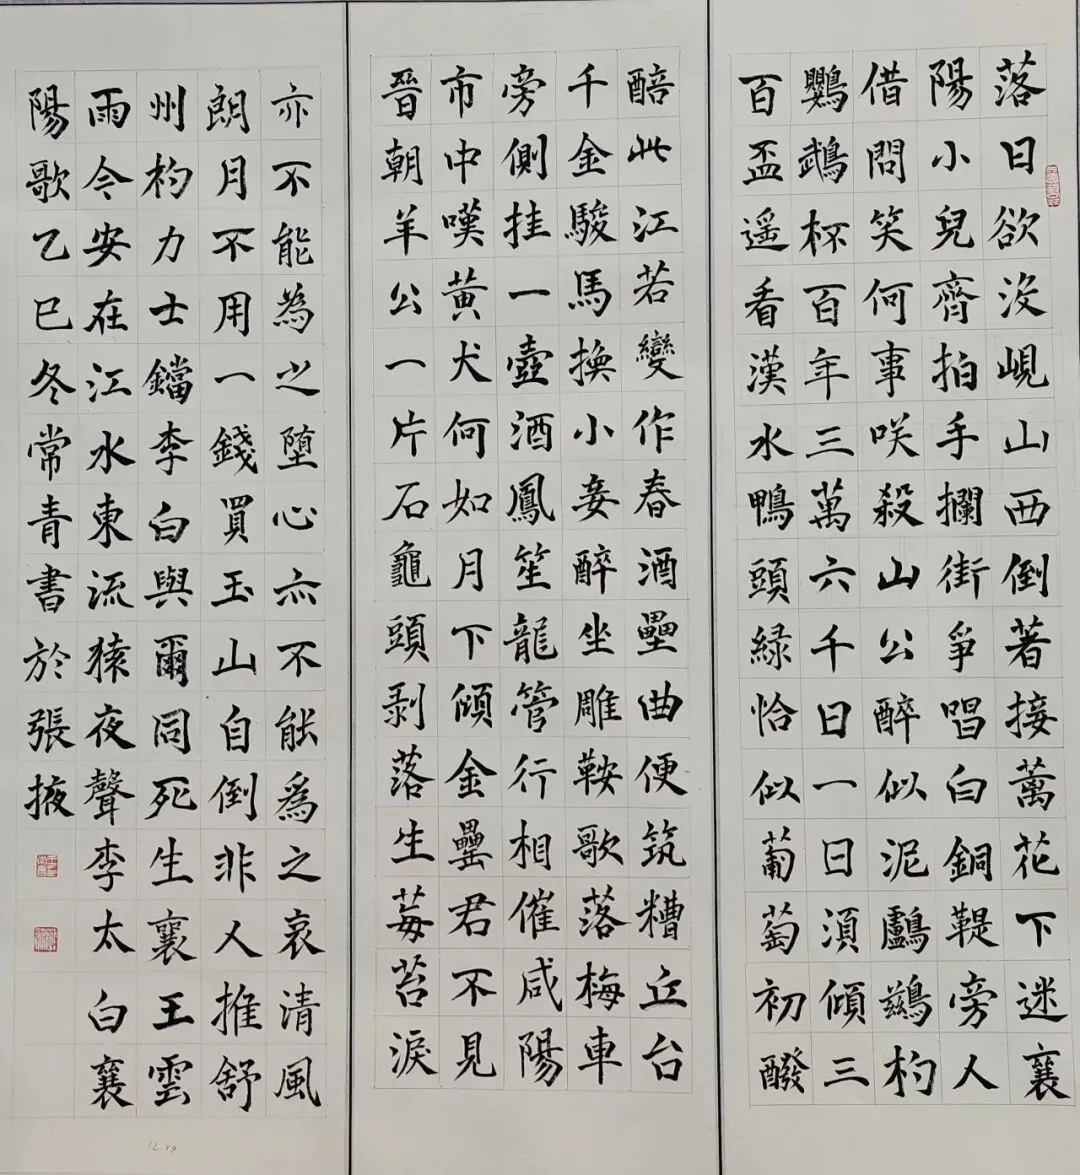 落日欲没峴山西倒著接蓠花下迷襄
陽小兒齊拍手攔街爭唱白銅鞮旁人
借問笑何事咲殺山公醉似泥鸕鷀杓
鸚鵡杯百年三萬六千日一日須傾三
百盃遥看漢水鴨頭緑恰似葡萄初醱
醅此江若變作春酒壘曲便筑糟丘台
千金駿馬換小妾醉坐雕鞍歌落梅車
旁側挂一壺酒鳳笙龍管行相催咸陽
市中嘆黄犬何如月下傾金罍君不見
晉朝羊公一片石龜頭剥落生莓苔淚
亦不能為之墮心亦不能為之哀清風
朗月不用一錢買玉山自倒非人推舒
州杓力士鐺李白與爾同死生襄王雲
雨今安在江水東流猿夜聲李太白襄
陽歌乙巳冬常青書於張掖